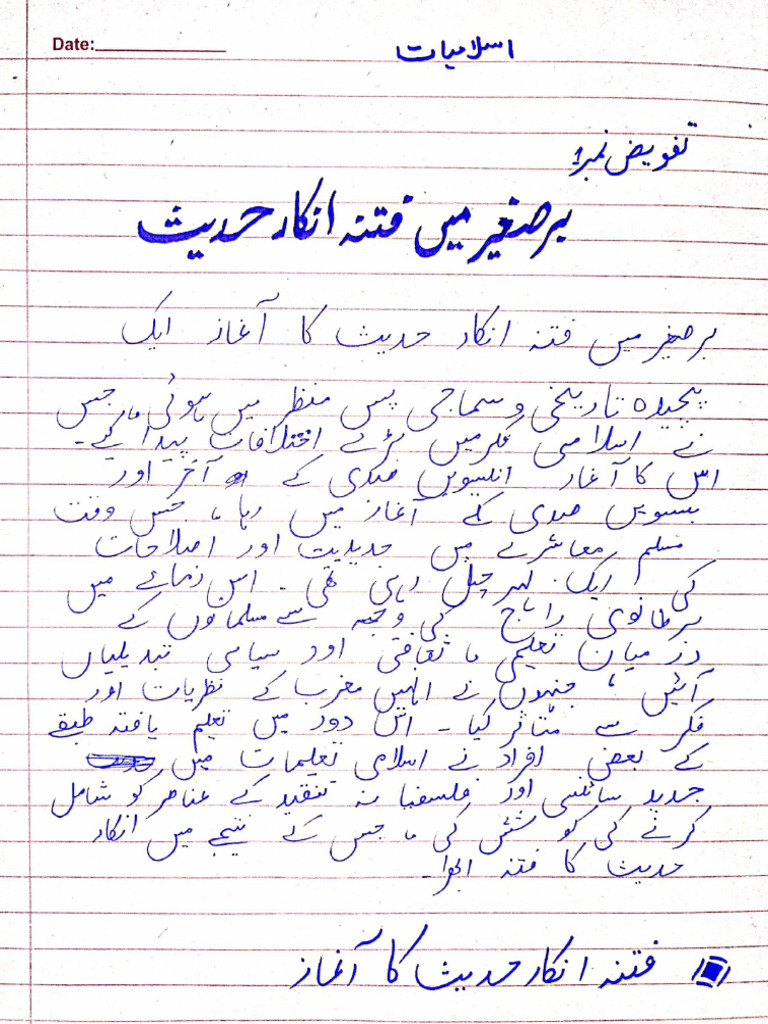 Date:
اسلامیات
تفویض نمبر 1
برصغیر میں فتنہ انکار حدیث
برصغیر میں فتنہ انکار حدیث کا آغاز ایک
پیچیدہ تاریخی و سماجی پس منظر میں ہوئی، جس
نے اسلامی فکر میں بڑے اختلافات پیدا کیے۔
اس کا آغاز انیسویں صدی کے آخر اور
بیسویں صدی کے آغاز میں رہا، جس وقت
مسلم معاشرے میں جدیدیت اور اصلاحات
کی ایک لہر چل رہی تھی۔ اس زمانے میں
برطانوی راج کی وجہ سے مسلمانوں کے
درمیان تعلیمی، ثقافتی اور سیاسی تبدیلیاں
آئیں، جنہوں نے انہیں مغرب کے نظریات اور
فکر سے متاثر کیا۔ اس دور میں تعلیم یافتہ طبقے
کے بعض افراد نے اسلامی تعلیمات میں
جدید سائنسی اور فلسفیانہ تنقید کے عناصر کو شامل
کرنے کی کوشش کی، جس کے نتیجے میں انکار
حدیث کا فتنہ ابھرا۔
فتنہ انکار حدیث کا آغاز